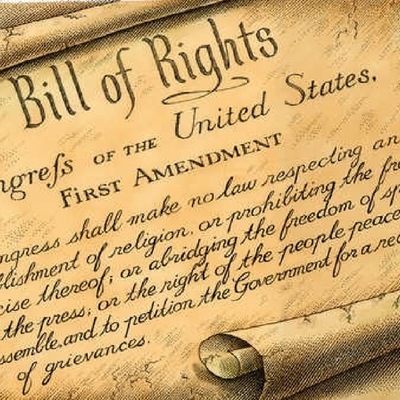 Bill of Rights
ngreſs OF THE United States,
FIRST AMENDMENT
ngress shall make no law respecting an
lishment of religion, or prohibiting the fre
cise thereof; or abridging the freedom of sp
the press; or the right of the people peace
ssemble, and to petition the Government for a red
of grievances.